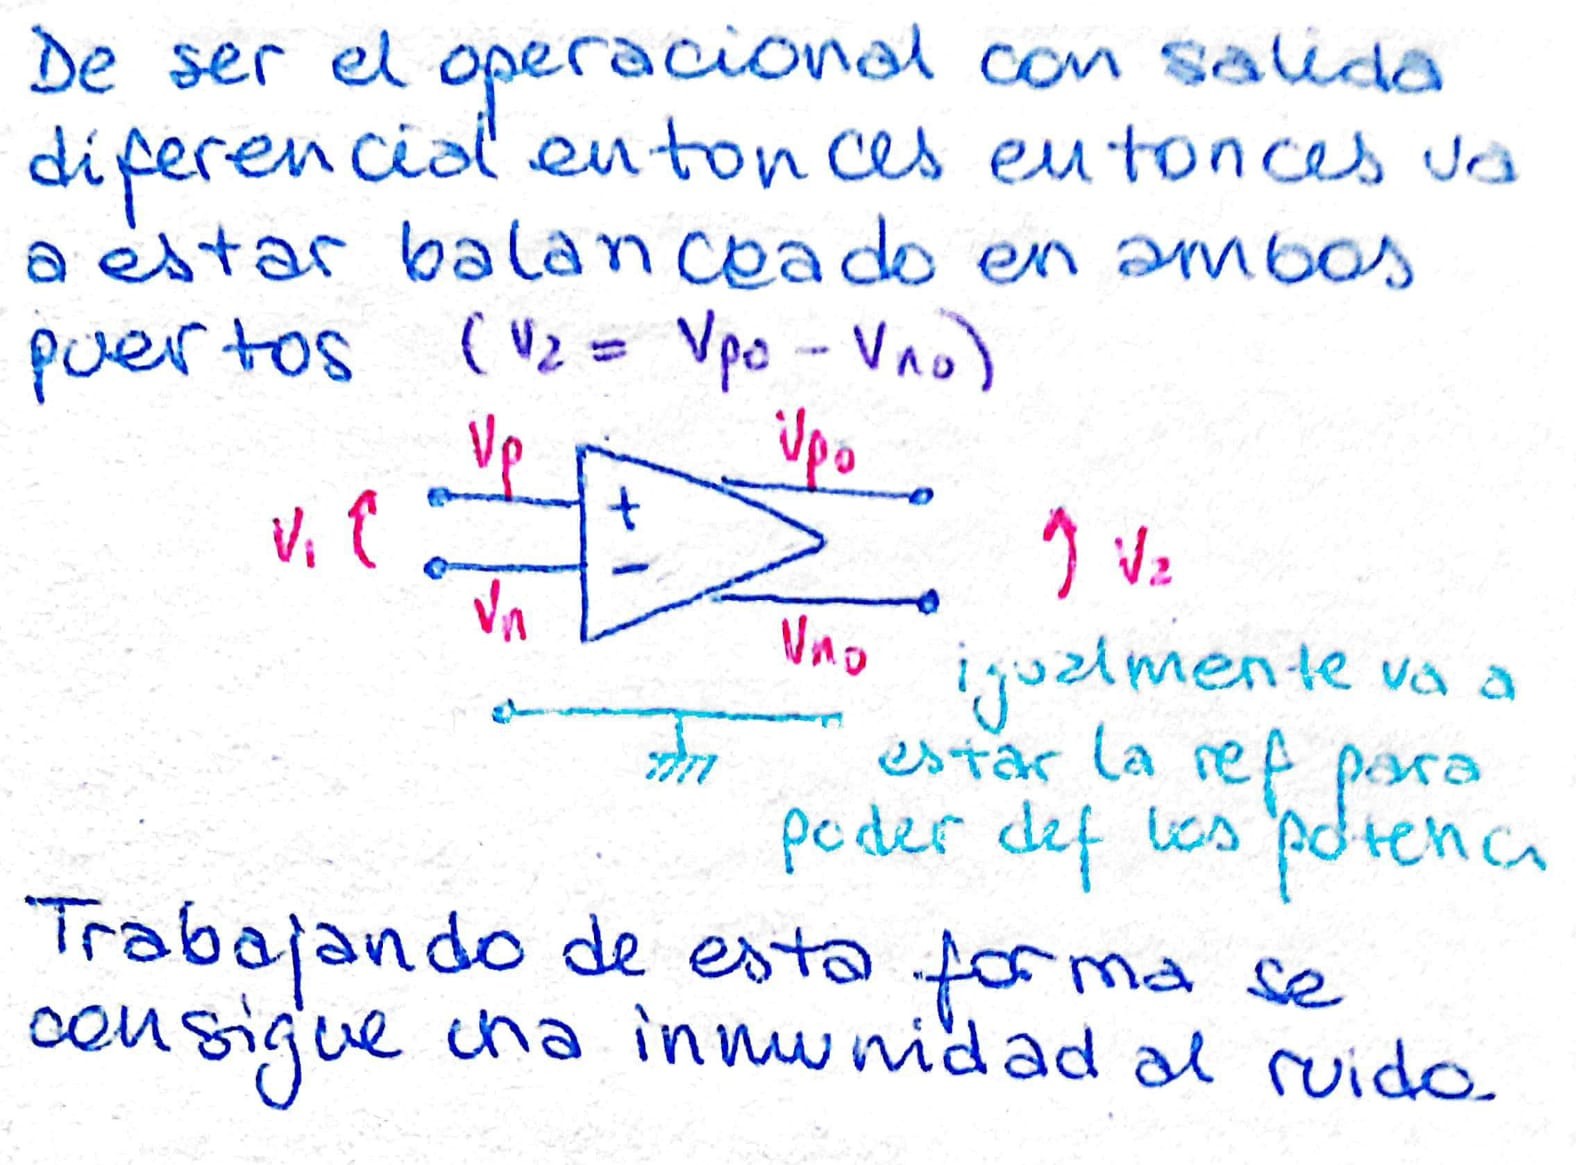 De ser el operacional con salida
diferencial entonces entonces va
a estar balanceado en ambos
puertos (V2 = Vpo - Vno)
Vp Vpo
+
V1 V2
-
Vn Vno
igualmente va a
estar la ref para
poder def los potenc
Trabajando de esta forma se
consigue una inmunidad al ruido